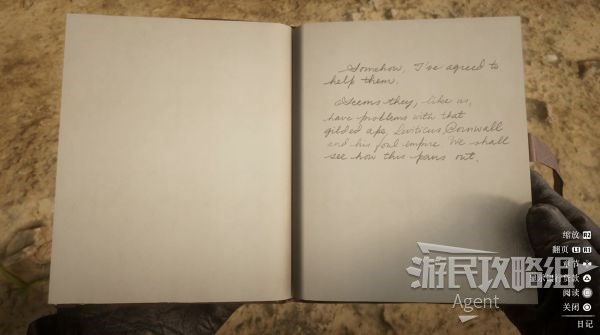 Somehow, I've agreed to
help them.
Seems they, like us,
have problems with that
gilded ape, Leviticus Cornwall
and his foul empire. We shall
see how this pans out.
缩放 R2
翻页 L1 R1
阅读
关闭
日记
游民攻略组
Agent